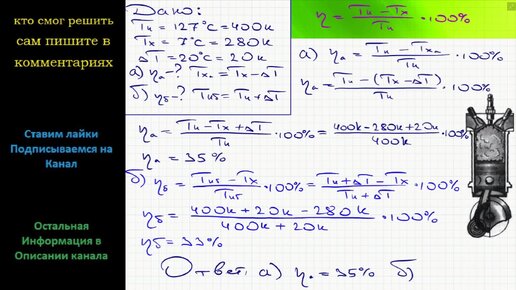 кто смог решить
сам пишите в
комментариях
Ставим лайки
Подписываемся на
Канал
Остальная
Информация в
Описании канала
Дано:
Tн = 127°C = 400К
Tх = 7°C = 280К
ΔT = 20°C = 20К
а) ηа-? Tха = Tх-ΔT
б) ηб-? Tнб = Tн+ΔT
η = (Tн - Tх)/Tн · 100%
а) ηа = (Tн - Tха)/Tн · 100%
ηа = (Tн - (Tх-ΔT))/Tн · 100%
ηа = (Tн - Tх + ΔT)/Tн · 100% = (400К - 280К + 20К)/400К · 100%
ηа = 35%
б) ηб = (Tнб - Tх)/Tнб · 100% = (Tн + ΔT - Tх)/(Tн + ΔT) · 100%
ηб = (400К + 20К - 280К)/(400К + 20К) · 100%
ηб = 33%
Ответ: а) ηа = 35% б)